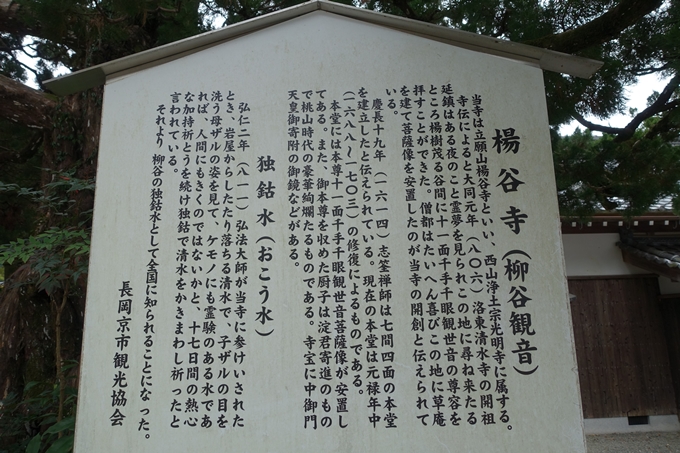 楊谷寺（柳谷観音）
当寺は立願山楊谷寺といい、西山浄土宗光明寺に属する。
寺伝によると大同元年（八〇六）、洛東清水寺の開祖
延鎮はある夜のこと霊夢を見られこの地に尋ね来たる
ところ楊樹茂る谷間に十一面千手千眼観世音の尊容を
拝すことができた。僧都はたいへん喜びこの地に草庵
を建て菩薩像を安置したのが当寺の開創と伝えられて
いる。
慶長十九年（一六一四）志筌禅師は七間四面の本堂
を建立したと伝えられている。現在の本堂は元禄年中
（一六八八〜一七〇三）の修復によるものである。
本堂には本尊十一面千手千眼観世音菩薩像が安置し
てある。また、御本尊を収めた厨子は淀君寄進のもの
で桃山時代の豪華絢爛たるものである。寺宝に中御門
天皇御寄附の御鏡などがある。
独鈷水（おこう水）
弘仁二年（八一一）弘法大師が当寺に参けいされた
とき、岩屋からしたたり落ちる清水で、子ザルの目を
洗う母ザルの姿を見て、ケモノにも霊験のある水であ
れば、人間にもきくのではないかと、十七日間の熱心
な加持祈とうを続け独鈷で清水をかきまわし祈ったと
言われている。
それより 柳谷の独鈷水として全国に知られることになった。
長岡京市観光協会